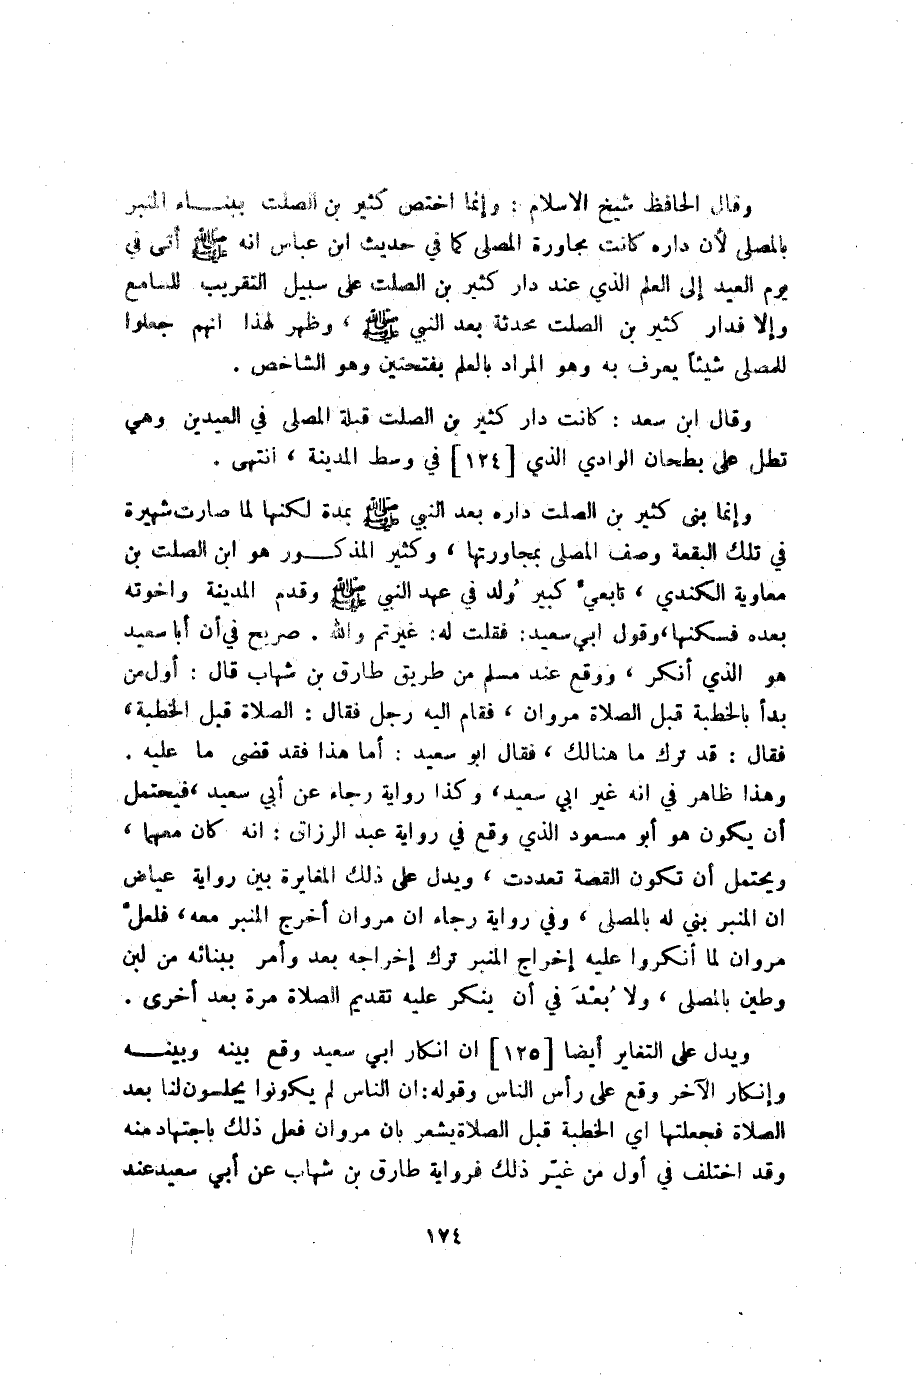 وقال الحافظ شيخ الاسلام : وإنما اختص كثير بن الصلت ببنـــاء المنبر
بالمصلى لأن داره كانت مجاورة المصلى كما في حديث ابن عباس انه ﷺ أتى في
يوم العيد إلى العلم الذي عند دار كثير بن الصلت على سبيل التقريب للسامع
وإلا فدار كثير بن الصلت محدثة بعد النبي ﷺ ، وظهر لهذا انهم جعلوا
للمصلى شيئاً يعرف به وهو المراد بالعلم بفتحتين وهو الشاخص .
وقال ابن سعد : كانت دار كثير بن الصلت قبلة المصلى في العيدين وهي
تطل على بطحان الوادي الذي [١٢٤] في وسط المدينة ، انتهى .
وإنما بنى كثير بن الصلت داره بعد النبي ﷺ بمدة لكنها لما صارت شهيرة
في تلك البقعة وصف المصلى بمجاورتها ، وكثير المذكـــور هو ابن الصلت بن
معاوية الكندي ، تابعيْ كبير وُلد في عهد النبي ﷺ وقدم المدينة واخوته
بعده فسكنها،وقول ابي سعيد: فقلت له: غيرتم والله . صريح في أن أبا سعيد
هو الذي أنكر ، ووقع عند مسلم من طريق طارق بن شهاب قال : أول من
بدأ بالخطبة قبل الصلاة مروان ، فقام اليه رجل فقال : الصلاة قبل الخطبة،
فقال : قد ترك ما هنالك ، فقال ابو سعيد : أما هذا فقد قضى ما عليه .
وهذا ظاهر في انه غير ابي سعيد، وكذا رواية رجاء عن أبي سعيد ،فيحتمل
أن يكون هو أبو مسعود الذي وقع في رواية عبد الرزاق : انه كان معهما ،
ويحتمل أن تكون القصة تعددت ، ويدل على ذلك المغايرة بين رواية عياض
ان المنبر بني له بالمصلى ، وفي رواية رجاء ان مروان أخرج المنبر معه، فلعلْ
مروان لما أنكروا عليه إخراج المنبر ترك إخراجه بعد وأمر ببنائه من لبن
وطين بالمصلى ، ولا بُعْدَ في أن ينكر عليه تقديم الصلاة مرة بعد أخرى .
ويدل على التغاير أيضا [١٢٥] ان انكار ابي سعيد وقع بينه وبينـــه
وإنكار الآخر وقع على رأس الناس وقوله:ان الناس لم يكونوا يجلسون لنا بعد
الصلاة فجعلتها اي الخطبة قبل الصلاة يشعر بان مروان فعل ذلك باجتهاد منه
وقد اختلف في أول من غيّر ذلك فرواية طارق بن شهاب عن أبي سعيد عند
١٧٤